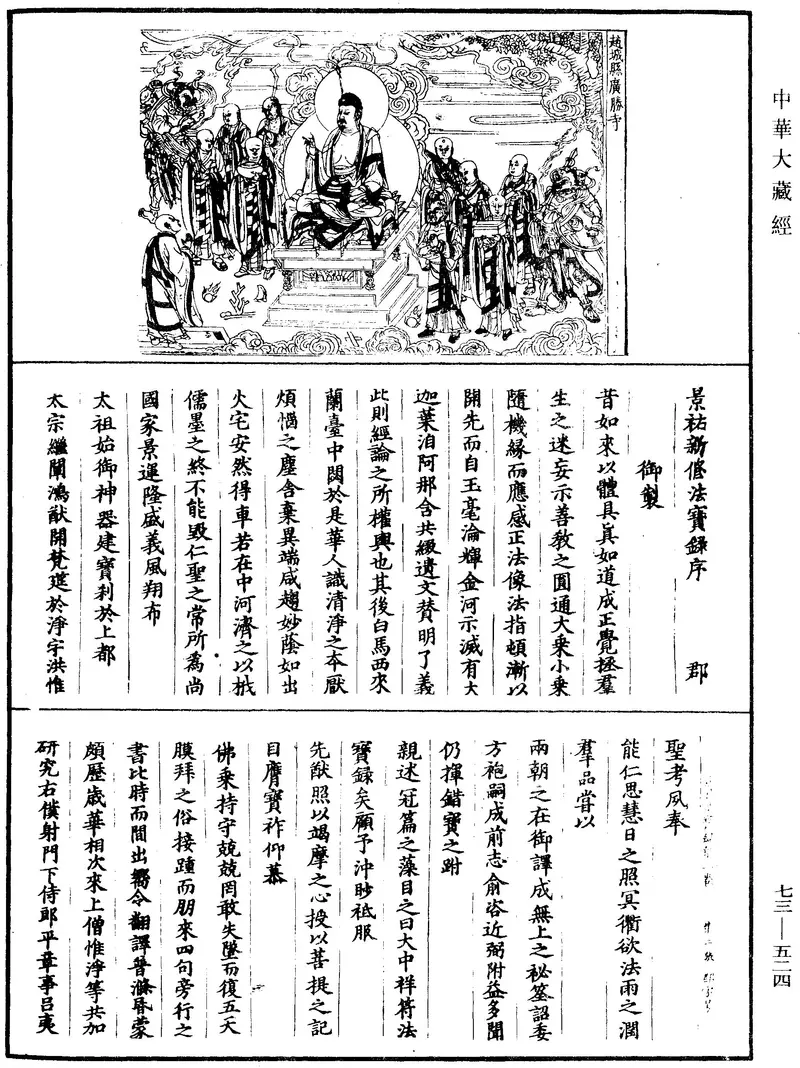 中華大藏經
趙城縣廣勝寺
景祐新修法寶録序 郡
御製
昔如來以體具真如道成正覺拯羣
生之迷妄示善教之圓通大乘小乘
隨機緣而應感正法像法指頓漸以
開先而自玉毫淪輝金河示滅有大
迦葉洎阿那含共綴遺文賛明了義
此則經論之所權輿也其後白馬西來
蘭臺中闢於是華人識清淨之本厭
煩惱之塵含棄異端咸趨妙蔭如出
火宅安然得車若在中河濟之以栰
儒墨之終不能毀仁聖之常所為尚
國家景運隆盛義風翔布
太祖始御神器建寶刹於上都
太宗繼闡鴻猷開梵筵於淨宇洪惟
聖考夙奉
能仁思慧日之照冥衢欲法雨之潤
羣品嘗以
兩朝之在御譯成無上之秘筌詔委
方袍嗣成前志俞咨近弼附益多聞
仍揮錯寶之跗
親述冠篇之藻目之曰大中祥符法
寶録矣顧予沖眇祗服
先猷照以竭摩之心授以菩提之記
自膺寶祚仰慕
佛乘持守兢兢罔敢失墜而復五天
膜拜之俗接踵而朋來四句旁行之
書比時而間出嚮令翻譯普滌昏蒙
頗歷歲華相次來上僧惟淨等共加
研究右僕射門下侍郎平章事吕夷
七三—五二四